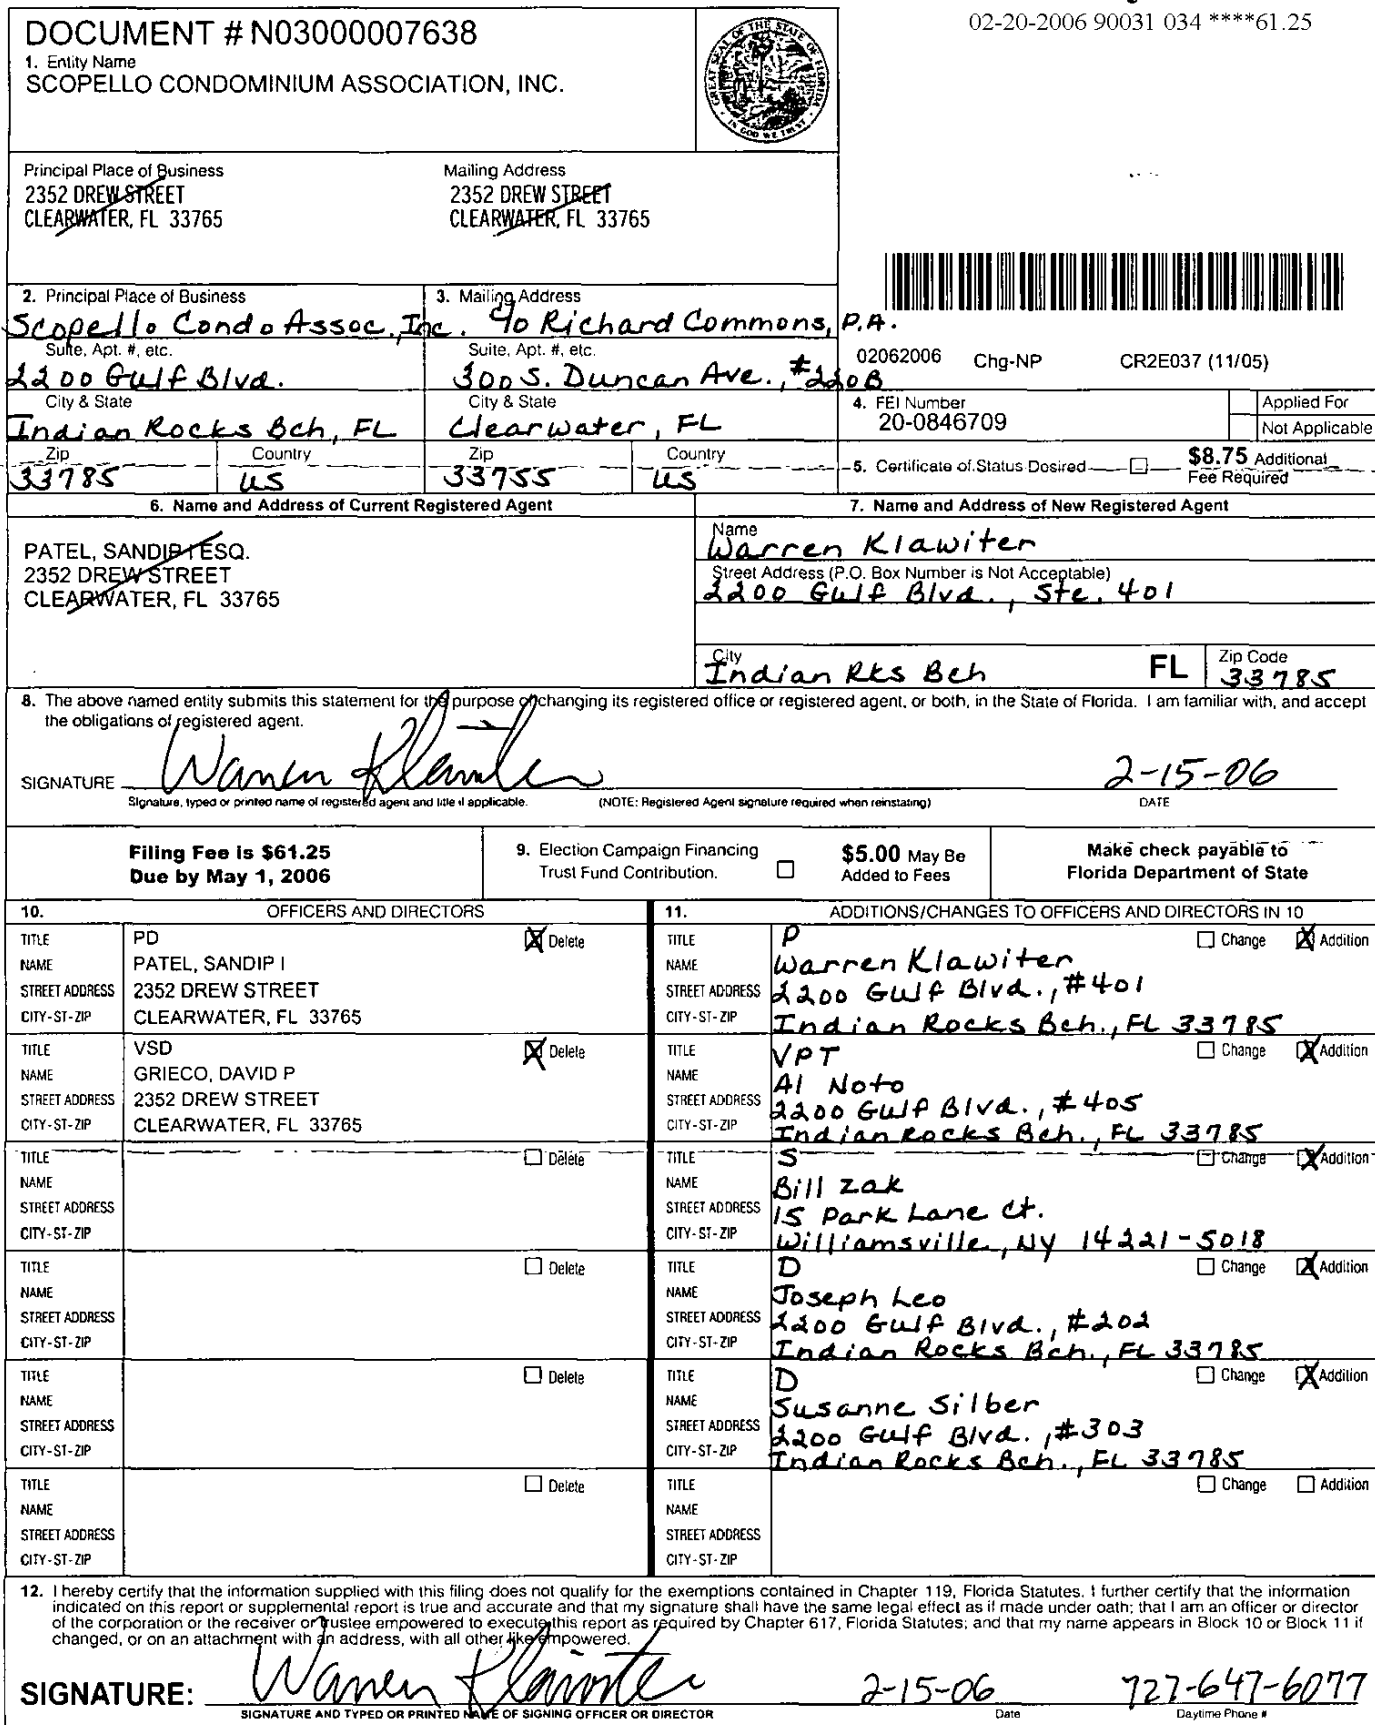 02-20-2006 90031 034 ****61.25
DOCUMENT # N03000007638
1. Entity Name
SCOPELLO CONDOMINIUM ASSOCIATION, INC.
GREAT SEAL OF THE STATE OF FLORIDA
IN GOD WE TRUST
Principal Place of Business
2352 DREW STREET
CLEARWATER, FL 33765
Mailing Address
2352 DREW STREET
CLEARWATER, FL 33765
2. Principal Place of Business
Scopello Condo Assoc., Inc.
Suite, Apt. #, etc.
2200 Gulf Blvd.
City & State
Indian Rocks Bch, FL
Zip Country
33785 US
3. Mailing Address
c/o Richard Commons, P.A.
Suite, Apt. #, etc.
300 S. Duncan Ave., #220B
City & State
Clearwater, FL
Zip Country
33755 US
02062006 Chg-NP CR2E037 (11/05)
4. FEI Number
20-0846709
Applied For
Not Applicable
5. Certificate of Status Desired $8.75 Additional
Fee Required
6. Name and Address of Current Registered Agent
PATEL, SANDIP I ESQ.
2352 DREW STREET
CLEARWATER, FL 33765
7. Name and Address of New Registered Agent
Name
Warren Klawiter
Street Address (P.O. Box Number is Not Acceptable)
2200 Gulf Blvd., Ste. 401
City FL Zip Code
Indian Rks Bch 33785
8. The above named entity submits this statement for the purpose of changing its registered office or registered agent, or both, in the State of Florida. I am familiar with, and accept
the obligations of registered agent.
SIGNATURE Warren Klawiter 2-15-06
Signature, typed or printed name of registered agent and title if applicable. (NOTE: Registered Agent signature required when reinstating) DATE
Filing Fee is $61.25
Due by May 1, 2006
9. Election Campaign Financing
Trust Fund Contribution.
$5.00 May Be
Added to Fees
Make check payable to
Florida Department of State
10. OFFICERS AND DIRECTORS
TITLE PD X Delete
NAME PATEL, SANDIP I
STREET ADDRESS 2352 DREW STREET
CITY-ST-ZIP CLEARWATER, FL 33765
TITLE VSD X Delete
NAME GRIECO, DAVID P
STREET ADDRESS 2352 DREW STREET
CITY-ST-ZIP CLEARWATER, FL 33765
TITLE Delete
NAME
STREET ADDRESS
CITY-ST-ZIP
TITLE Delete
NAME
STREET ADDRESS
CITY-ST-ZIP
TITLE Delete
NAME
STREET ADDRESS
CITY-ST-ZIP
TITLE Delete
NAME
STREET ADDRESS
CITY-ST-ZIP
11. ADDITIONS/CHANGES TO OFFICERS AND DIRECTORS IN 10
TITLE P Change X Addition
NAME Warren Klawiter
STREET ADDRESS 2200 Gulf Blvd., #401
CITY-ST-ZIP Indian Rocks Bch., FL 33785
TITLE VPT Change X Addition
NAME Al Noto
STREET ADDRESS 2200 Gulf Blvd., #405
CITY-ST-ZIP Indian Rocks Bch., FL 33785
TITLE S Change X Addition
NAME Bill Zak
STREET ADDRESS 15 Park Lane Ct.
CITY-ST-ZIP Williamsville, NY 14221-5018
TITLE D Change X Addition
NAME Joseph Leo
STREET ADDRESS 2200 Gulf Blvd., #202
CITY-ST-ZIP Indian Rocks Bch., FL 33785
TITLE D Change X Addition
NAME Susanne Silber
STREET ADDRESS 2200 Gulf Blvd., #303
CITY-ST-ZIP Indian Rocks Bch., FL 33785
TITLE Change Addition
NAME
STREET ADDRESS
CITY-ST-ZIP
12. I hereby certify that the information supplied with this filing does not qualify for the exemptions contained in Chapter 119, Florida Statutes. I further certify that the information
indicated on this report or supplemental report is true and accurate and that my signature shall have the same legal effect as if made under oath; that I am an officer or director
of the corporation or the receiver or trustee empowered to execute this report as required by Chapter 617, Florida Statutes; and that my name appears in Block 10 or Block 11 if
changed, or on an attachment with an address, with all other like empowered.
SIGNATURE: Warren Klawiter 2-15-06 727-647-6077
SIGNATURE AND TYPED OR PRINTED NAME OF SIGNING OFFICER OR DIRECTOR Date Daytime Phone #